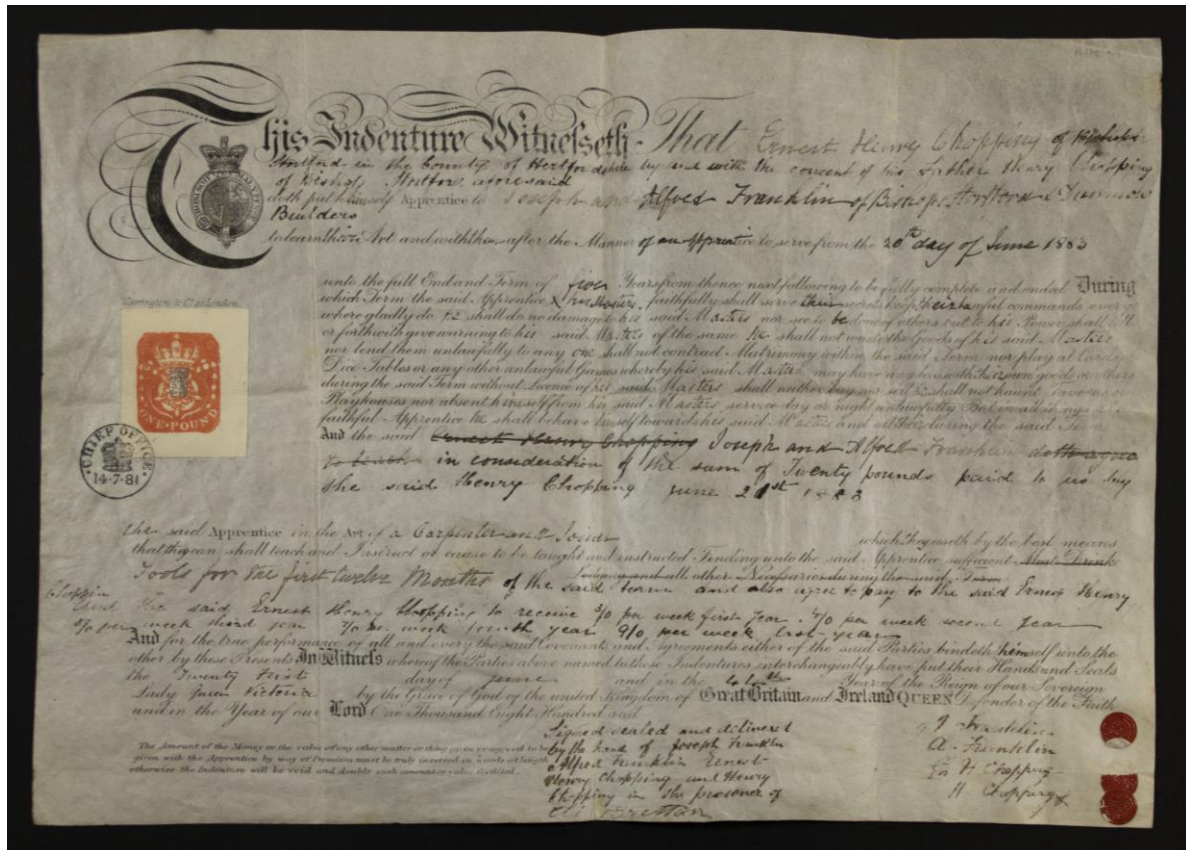 This Indenture Witnesseth That Ernest Henry Chopping of Bishops
Stortford in the County of Hertfordshire by and with the consent of his Father Henry Chopping
of Bishops Stortford aforesaid
doth put himself Apprentice to Joseph and Alfred Franklin of Bishops Stortford & Dunmow
Builders
to learn their Art and with them after the Manner of an Apprentice to serve from the 20th day of June 1883
unto the full End and Term of five Years from thence next following to be fully complete and ended During
which Term the said Apprentice his Masters faithfully shall serve their secrets keep their lawful commands every
where gladly do He shall do no damage to his said Masters nor see to be done of others but to his Power shall tell
or forthwith give warning to his said Masters of the same He shall not waste the Goods of his said Masters
nor lend them unlawfully to any He shall not contract Matrimony within the said Term nor play at Cards
Dice Tables or any other unlawful Games whereby his said Masters may have any loss with their own goods or others
during the said Term without Licence of his said Masters shall neither buy nor sell He shall not haunt Taverns or
Playhouses nor absent himself from his said Masters service day or night unlawfully But in all things as a
faithful Apprentice He shall behave himself towards his said Masters and all theirs during the said Term
And the said Ernest Henry Chopping Joseph and Alfred Franklin doth agree
to teach in consideration of the sum of Twenty pounds paid to us by
the said Henry Chopping June 21st 1883
the said Apprentice in the Art of a Carpenter and Joiner which they useth by the best means
that they can shall teach and Instruct or cause to be taught and instructed Finding unto the said Apprentice sufficient Meat Drink
Lodging and all other Necessaries during the said Term
Tools for the first twelve Months of the said term and also agree to pay to the said Ernest Henry
Chopping
And the said Ernest Henry Chopping to receive 3/0 per week first year. per week second year
5/0 per week third year 7/0 per week fourth year 9/0 per week last year
And for the true performance of all and every the said Covenants and Agreements either of the said Parties bindeth himself unto the
other by these Presents In Witness whereof the Parties above named to these Indentures interchangeably have put their Hands and Seals
the Twenty First day of June and in the Year of the Reign of our Sovereign
Lady Queen Victoria by the Grace of God of the united Kingdom of Great Britain and Ireland QUEEN Defender of the Faith
and in the Year of our Lord One Thousand Eight Hundred and
Waterlow & Co London
ONE POUND
CHIEF OFFICE
14·7·81
The Amount of the Money or the value of any other matter or thing given or agreed to be
given with the Apprentice by way of Premium must be truly inserted in words at length
otherwise the Indenture will be void and double such amount or value forfeited.
Signed sealed and delivered
by the hand of Joseph Franklin
Alfred Franklin Ernest
Henry Chopping and Henry
Chopping in the presence of
J Franklin
A. Franklin
H Chopping
H Chopping